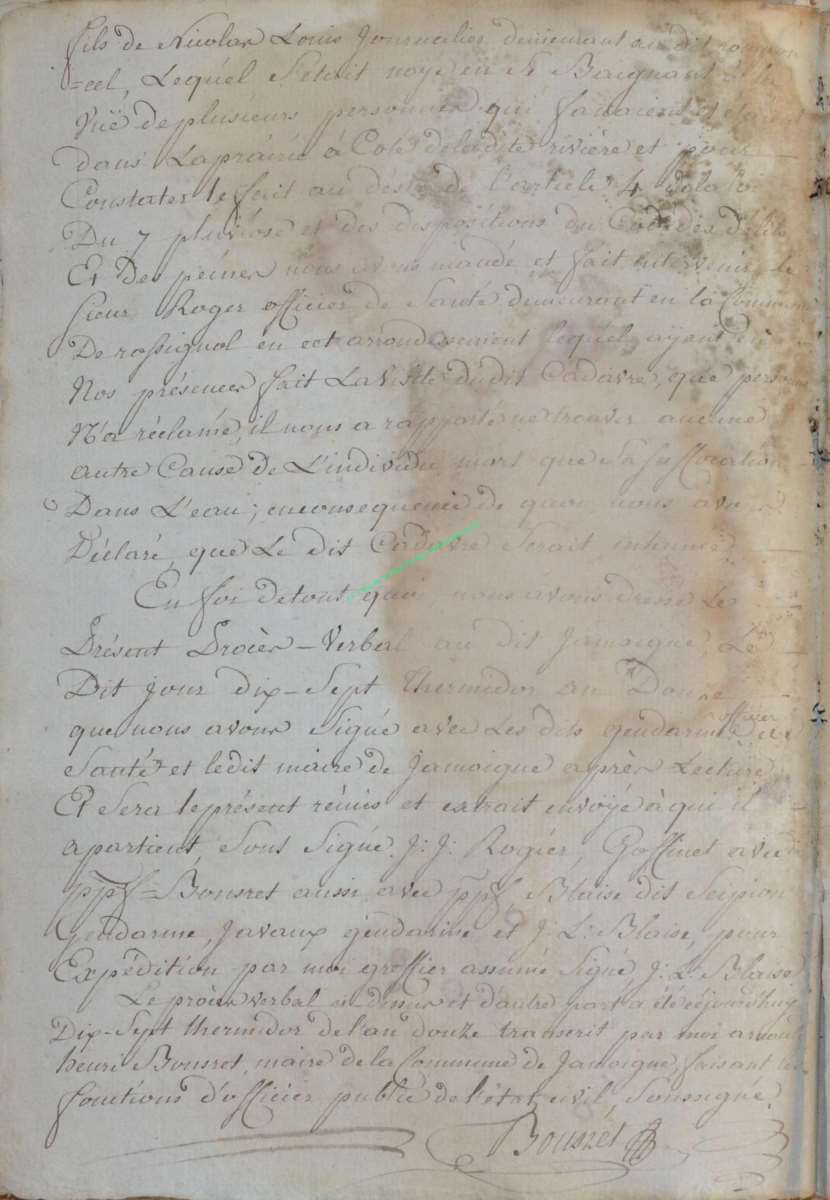 fils de Nicolas Louis Journalier demeurant au dit romponr
=cel, Lequel S'etait noyé en Se Baignant à la
Vuë de plusieurs personnes qui fanaient et
dans La prairie à Coté de ladite rivière et pour
Constater le fait au désir de l'article 4 de la loi
Du 7 pluviose et des dispositions du Code des délits
Et Des peines nous avons mandé et fait intervenir le
sieur Roger officier de Santé demeurant en la Commune
De rossignol en cet arrondissement lequel ayant en
Nos présences fait La visite dudit Cadavre, que personne
N'a réclamé, il nous a rapporté ne trouver aucune
autre Cause de L'individu mort que Sa suffocation
Dans L'eau; en consequence de quoi nous avons
Déclaré que Le dit Cadavre Serait inhumé
En foi de tout quoi, nous avons dressé Le
Présent Procès-Verbal au dit Jamoigne, Le
Dit jour dix-Sept thermidor an Douze
que nous avons Signé avec Les dits gendarmes officier de
Santé et ledit maire de Jamoigne après Lecture
Et Sera le présent rémis et extrait envoyé à qui il
apartient Sous Signé J: J: Rogier, Goffinet avec
ppf = Bonsret aussi avec ppf, Blaise dit Scipion
Gendarme, Javaux gendarme et J: L: Blaise, pour
Expédition par moi greffier assumé Signé J: L: Blaise
Le procès verbal ci dessus et d'autre part a été cejourdhuy
Dix-Sept thermidor de l'an douze transcrit par moi arnould
henri Bonsret, maire de la Commune de Jamoigne faisant les
fonctions d'officier public de l'état civil, Soussigné.
Bonsret